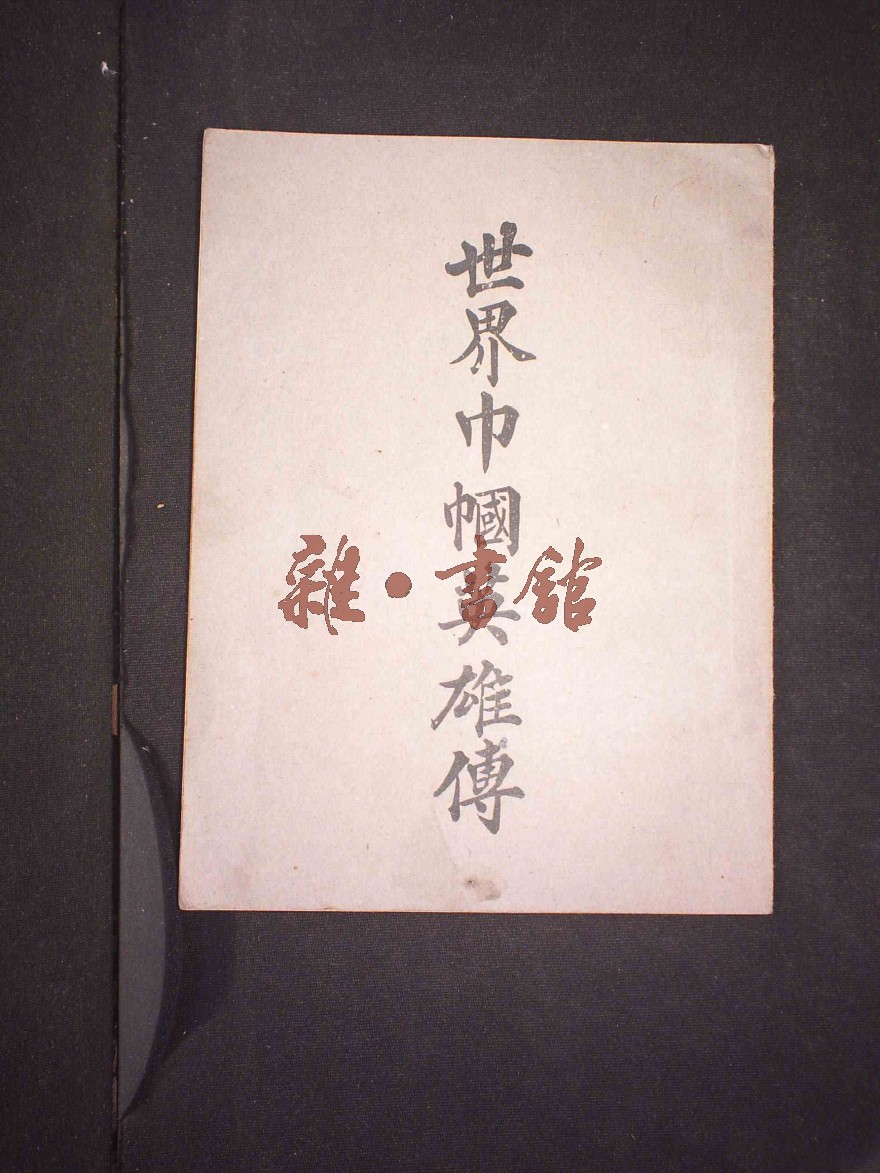 世界巾幗英雄傳
雜•書館